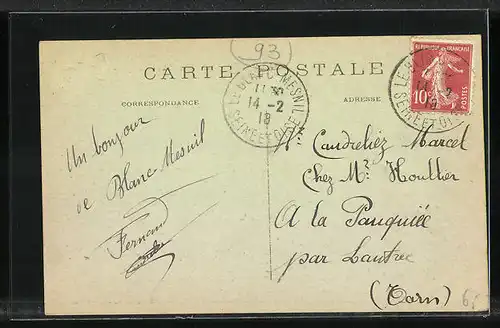 93
CARTE POSTALE
CORRESPONDANCE
ADRESSE
LE BLANC-MESNIL
14 -2
18
SEINE ET OISE
REPUBLIQUE FRANCAISE
10c
POSTES
Un bonjour
de Blanc Mesnil
Fernand
Mr Caudreliez Marcel
Chez Mr Houllier
A la Pauquiée
par Lautrec
(Tarn)
6,-